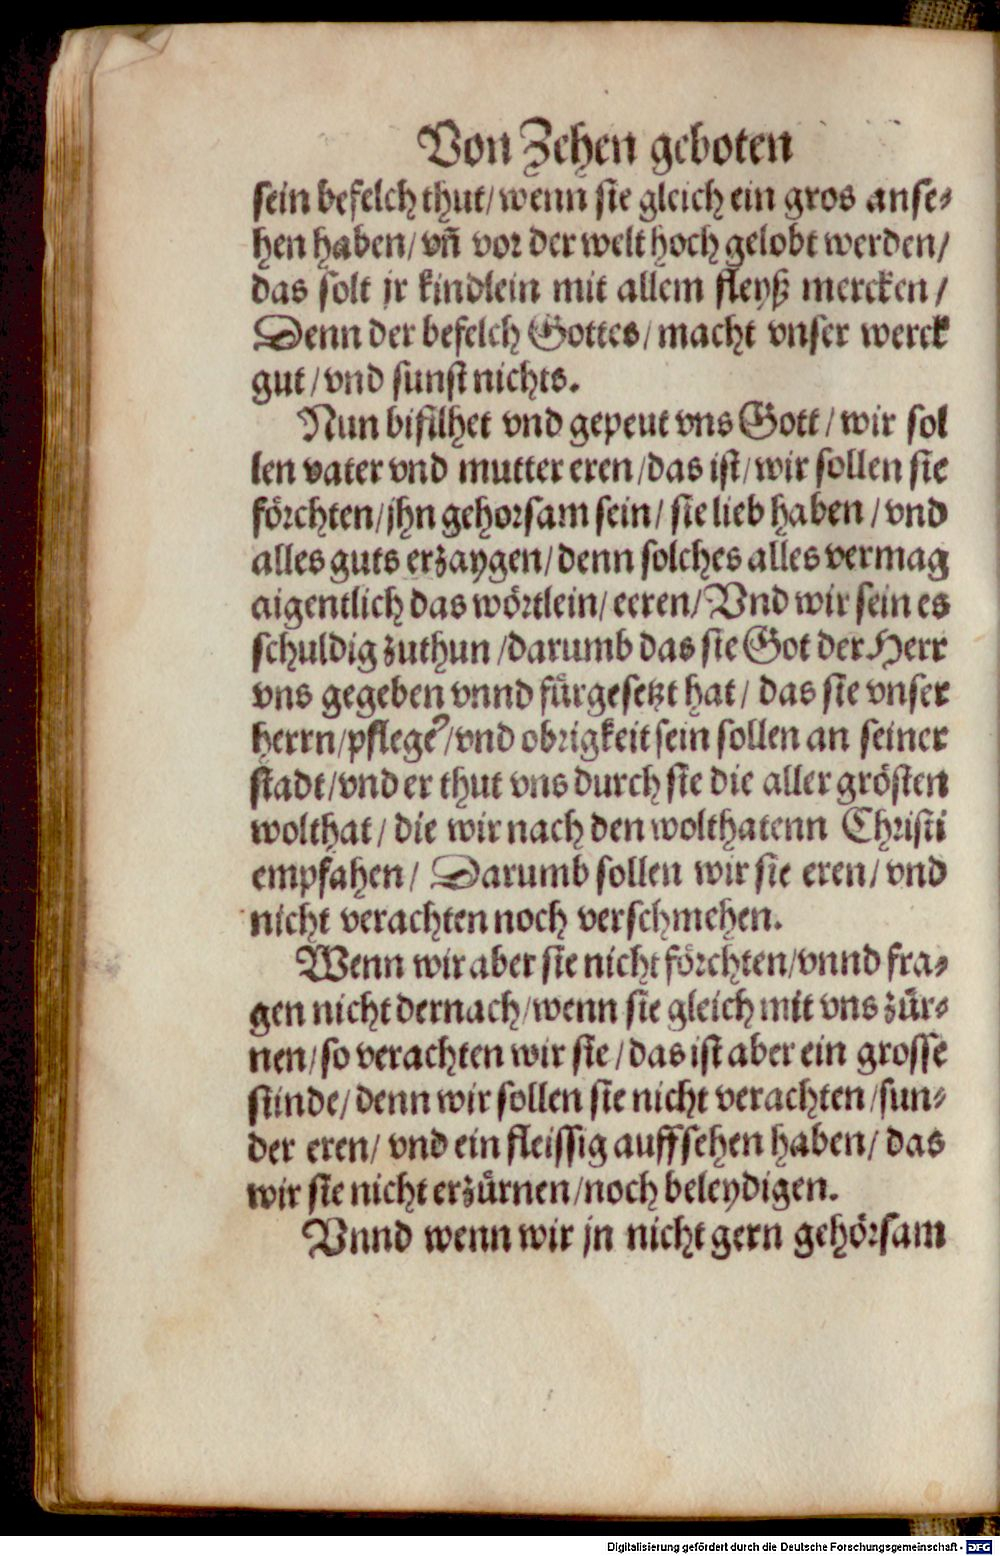 Von Zehen geboten
sein befelch thut/ wenn sie gleich ein gros anse⸗
hen haben/ vn̄ vor der welt hoch gelobt werden/
das solt jr kindlein mit allem fleyß mercken/
Denn der befelch Gottes/ macht vnser werck
gut/ vnd sunst nichts.
Nun bifilhet vnd gepeut vns Gott/ wir sol
len vater vnd mutter eren/ das ist/ wir sollen sie
förchten/ jhn gehorsam sein/ sie lieb haben/ vnd
alles guts erzaygen/ denn solches alles vermag
aigentlich das wörtlein/ eeren/ Vnd wir sein es
schuldig zuthun/ darumb das sie Got der Herr
vns gegeben vnnd fürgesetzt hat/ das sie vnser
herrn/ pflege᷑/ vnd obrigkeit sein sollen an seiner
stadt/ vnd er thut vns durch sie die aller grösten
wolthat/ die wir nach den wolthatenn Christi
empfahen/ Darumb sollen wir sie eren/ vnd
nicht verachten noch verschmehen.
Wenn wir aber sie nicht förchten/ vnnd fra⸗
gen nicht dernach/ wenn sie gleich mit vns zür⸗
nen/ so verachten wir sie/ das ist aber ein grosse
sünde/ denn wir sollen sie nicht verachten/ sun⸗
der eren/ vnd ein fleissig auffsehen haben/ das
wir sie nicht erzürnen/ noch beleydigen.
Vnnd wenn wir jn nicht gern gehörsam
Digitalisierung gefördert durch die Deutsche Forschungsgemeinschaft - DFG